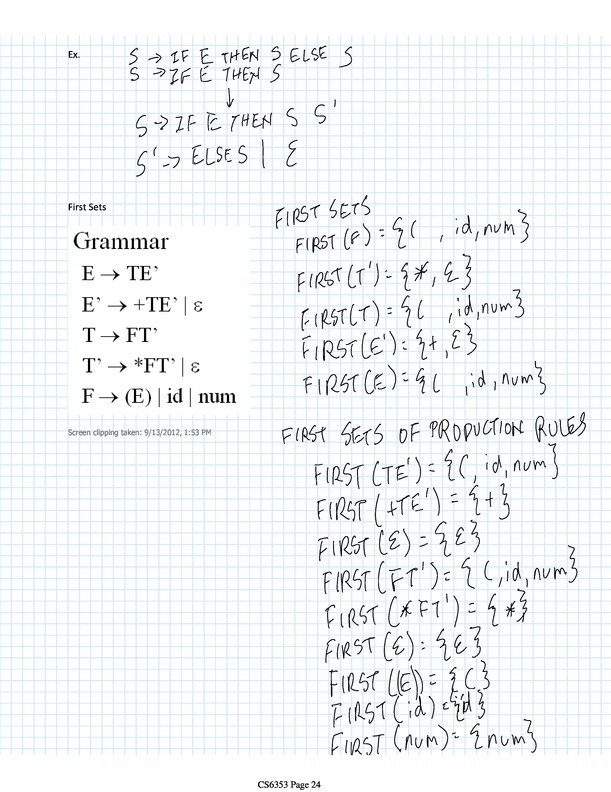 Ex.
S → IF E THEN S ELSE S
S → IF E THEN S
↓
S → IF E THEN S S'
S' → ELSE S | ε
First Sets
Grammar
E → TE’
E’ → +TE’ | ε
T → FT’
T’ → *FT’ | ε
F → (E) | id | num
Screen clipping taken: 9/13/2012, 1:53 PM
FIRST SETS
FIRST (F) = {( , id, num}
FIRST (T') = {*, ε}
FIRST(T) = {( , id, num}
FIRST(E') = {+, ε}
FIRST(E) = {( , id, num}
FIRST SETS OF PRODUCTION RULES
FIRST (TE') = {(, id, num}
FIRST (+TE') = {+}
FIRST (ε) = {ε}
FIRST (FT') = {(, id, num}
FIRST (*FT') = {*}
FIRST (ε) = {ε}
FIRST ((E)) = {(}
FIRST (id) = {id}
FIRST (num) = {num}
CS6353 Page 24